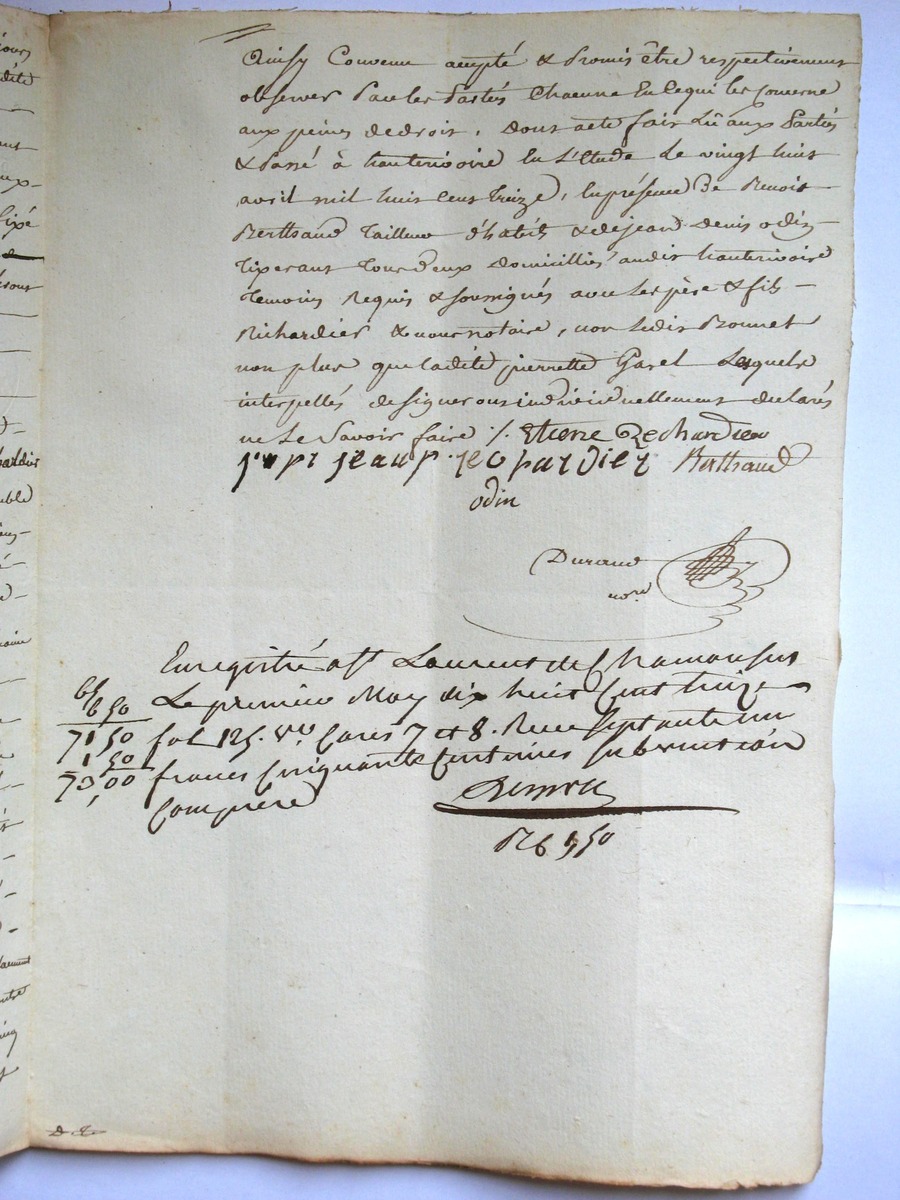 Ainsy Convenu accepté & Promis être respectivement
observer Par les Partés Chacune En ce qui les conserne
aux peines de droit, dont acte fait Lû aux Partés
& Passé à hauterivoire En L'Etude Le vingt huit
avril mil huit Cent treize, En présence De Benoit
Berthaud Tailleur d'habits & de jean denis odin
Tixerant Tous deux Domicilliés audit hauterivoire
Temoins Requis & soussignés avec Les père & fils
Richardier & nous notaire, non Ledit Bonnet
non plus que ladite pierrette Garel Lesquels
interpellés de signer ont individuellement declarés
ne Le Savoir faire ./. Etiene Rechardier
jean Berthaud
odin
Durand
nore
Enregistré a St Laurent de Chamousset
Le premier May dix huit Cent treize
fol 125. Vo Cases 7 et 8. Recu Septante un
francs Cinquante Centimes subvention
Comprise
6,50
71,50
1,50
73,00
R 6 1,50